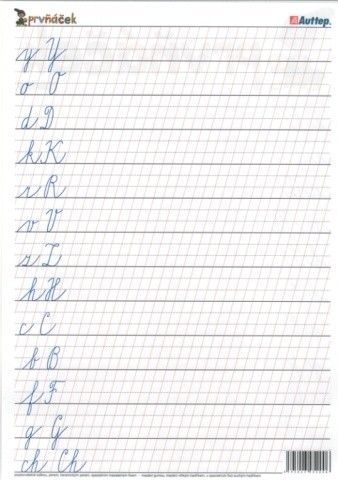 prvňáček
Auttep.
y Y
o O
d D
k K
r R
v V
z Z
h H
c C
b B
f F
g G
ch Ch